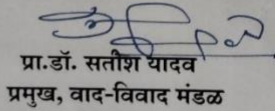 प्रा.डॉ. सतीश यादव
प्रमुख, वाद-विवाद मंडळ